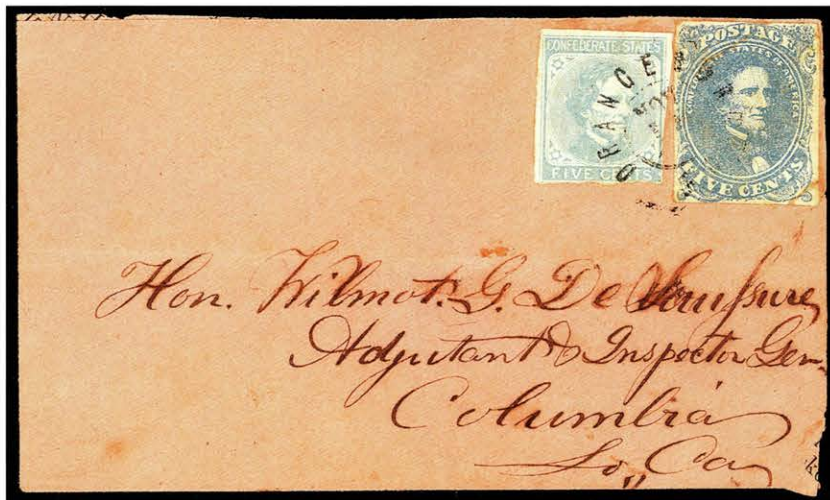 CONFEDERATE STATES
FIVE CENTS
POSTAGE
CONFEDERATE STATES OF AMERICA
FIVE CENTS
ORANGE
NOV
Hon. Wilmot. G. De Saussure
Adjutant & Inspector Gen.
Columbia
So,, Ca